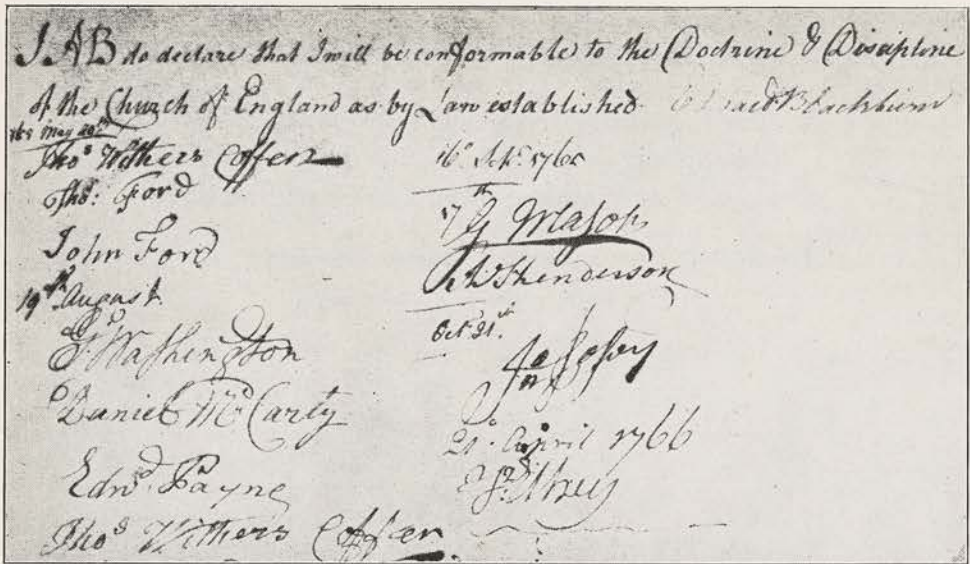 I AB do declare that I will be conformable to the Doctrine & Discipline
of the Church of England as by Law established. Blackburn
May 20th
Thos Withers Coffer
Thos: Ford
John Ford
19th August
G: Washington
Daniel McCarty
Edwd. Payne
Thos Withers Coffer
16th Sepr. 1765
17th G Mason
Henderson
Octr 21st.
21st April 1766